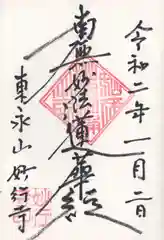 令和二年一月二日
南無妙法蓮華経
東永山妙行寺